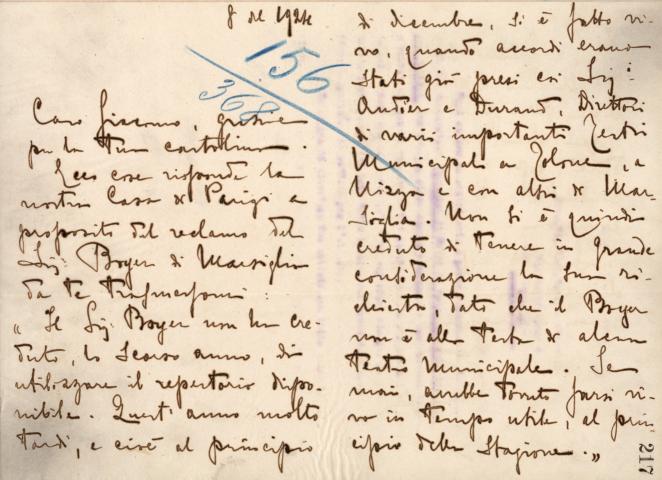 8 del 1924
156
368
Caro Giacomo, grazie
per la tua cartolina.
Ecco cosa risponde la
nostra Casa di Parigi a
proposito del reclamo del
Sig: Boyer di Marsiglia
da te trasmessomi:
"Il Sig. Boyer non ha cre-
duto, lo scorso anno, di
utilizzare il repertorio dispo-
nibile. Quest'anno molto
tardi, e cioè al principio
di dicembre, si è fatto vi-
vo, quando accordi erano
stati già presi coi Sig:i
Audier e Durand, Direttori
di varii importanti Teatri
Municipali a Tolone, a
Nizza e con altri di Mar-
siglia. Non si è quindi
creduto di tenere in grande
considerazione la sua ri-
chiesta, dato che il Boyer
non è alla testa di alcun
teatro municipale. Se
mai, avrebbe dovuto farsi vi-
vo in tempo utile, al prin-
cipio della stagione."
217